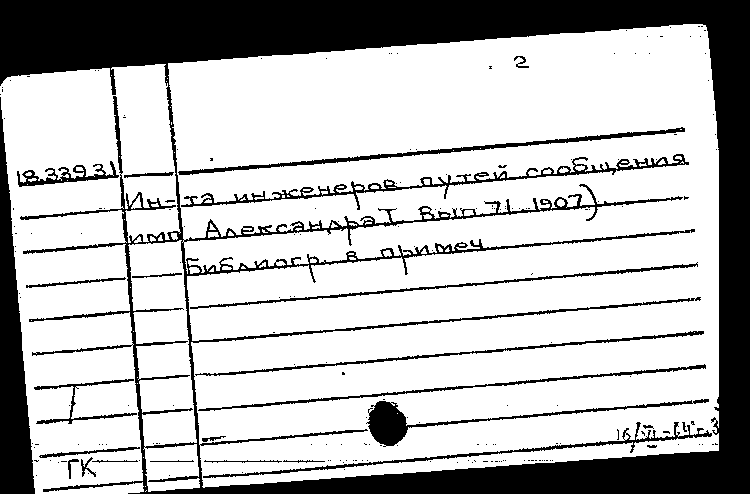 2
18.339.31
Ин-та инженеров путей сообщения
имп. Александра I Вып. 71. 1907).
Библиогр. в примеч
ГК